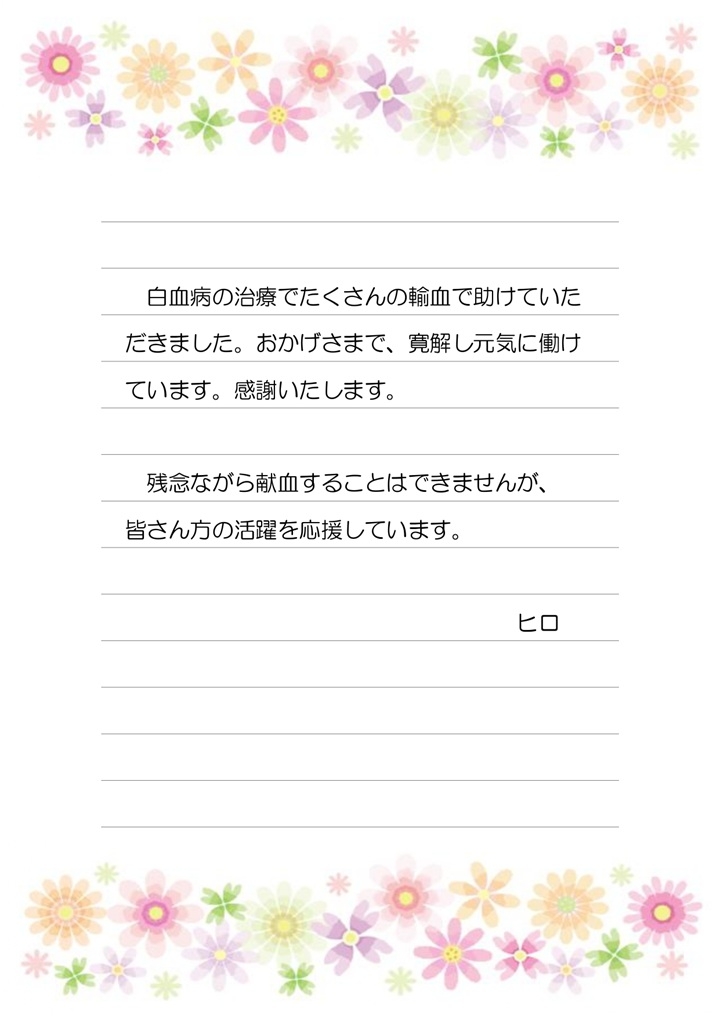 白血病の治療でたくさんの輸血で助けていた
だきました。おかげさまで、寛解し元気に働け
ています。感謝いたします。
　残念ながら献血することはできませんが、
皆さん方の活躍を応援しています。
ヒロ